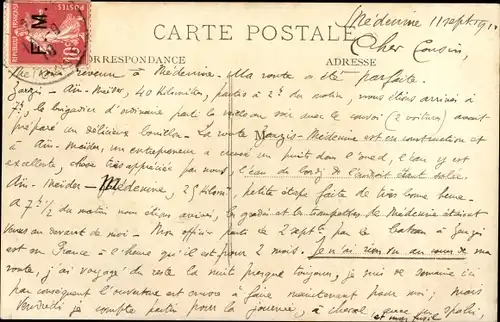 F. M.
CARTE POSTALE
CORRESPONDANCE
ADRESSE
Médenine 11 sept. 191
Cher Cousin,
revenu à Médenine. Ma route a été parfaite.
Zarzis - Aïn-Maïder, 40 kilomètres, partis à 2h du matin, nous étions arrivés à
7h, le brigadier d'ordinaire parti la veille au soir avec le convoi (2 voitures) avait
préparé un délicieux bouillon. La route Zarzis-Médenine est en construction et
à Aïn-Maïder, un entrepreneur a creusé un puits dans l'oued, l'eau y est
excellente, chose très appréciée par nous, l'eau de l'endroit étant salée.
Aïn-Maïder - Médenine, 25 kilom, petite étape faite de très bonne heure.
à 7h 1/2 du matin nous étions arrivés, les et les trompettes de Médenine étaient
venus au devant de moi. Mon officier parti du 2 sept. par le bateau à Zarzis
est en France à l'heure qu'il est pour 2 mois. Je n'ai rien vu au cours de ma
route, j'ai voyagé du reste la nuit presque toujours, je suis de semaine ici
par conséquent l'ouverture est encore à faire maintenant pour moi; mais
Vendredi je compte partir pour la journée, à cheval, avec un spahi,
et mon fusil